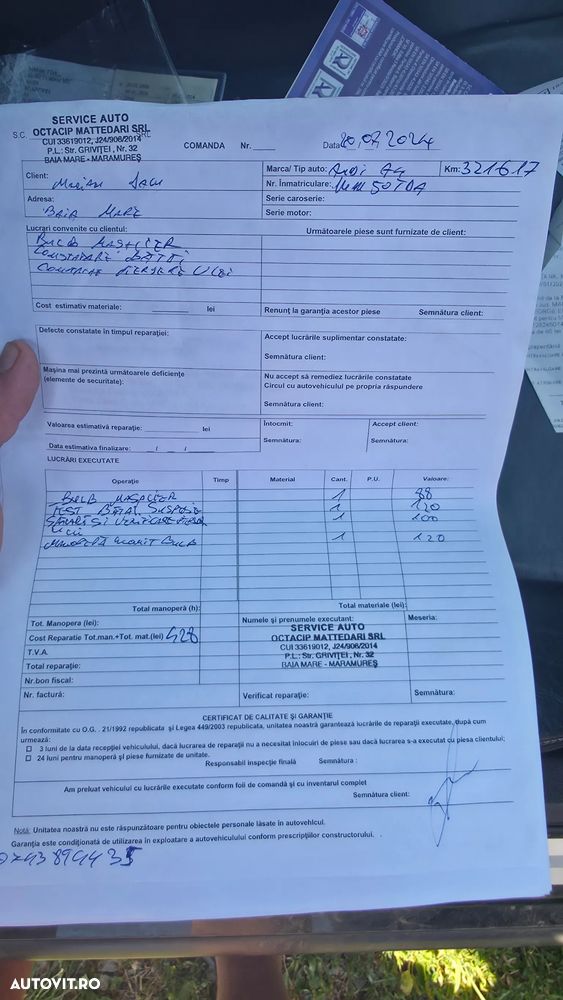 SERVICE AUTO
S.C. OCTACIP MATTEDARI SRL
CUI 33619012, J24/906/2014
P.L.: Str. GRIVIȚEI, Nr. 32
BAIA MARE - MARAMUREȘ
COMANDA Nr. ____ Data 20,07,2024
Client: Marian
Marca/ Tip auto: Audi A4 Km: 321617
Nr. Înmatriculare:
Adresa: BAIA MARE
Serie caroserie:
Serie motor:
Lucrari convenite cu clientul:
Următoarele piese sunt furnizate de client:
BUCB
CONSTATARE BĂTĂI
CONSTATARE PIERDERE ULEI
Cost estimativ materiale: lei
Renunț la garanția acestor piese Semnătura client:
Defecte constatate în timpul reparației:
Accept lucrările suplimentar constatate:
Semnătura client:
Mașina mai prezintă următoarele deficiențe
(elemente de securitate):
Nu accept să remediez lucrările constatate
Circul cu autovehiculul pe propria răspundere
Semnătura client:
Valoarea estimativă reparație: lei
Întocmit:
Accept client:
Data estimativa finalizare: / /
Semnătura:
Semnătura:
LUCRĂRI EXECUTATE
Operație Timp Material Cant. P.U. Valoare:
1 88
TEST BĂTĂI SUSPENSIE 1 120
SPĂLAT ȘI VERIFICARE 1 100
ULEI
MANOPERĂ MONTAT BUCB 1 120
Total manoperă (h): Total materiale (lei):
Tot. Manopera (lei):
Numele și prenumele executant: Meseria:
SERVICE AUTO
OCTACIP MATTEDARI SRL
CUI 33619012, J24/906/2014
P.L.: Str. GRIVIȚEI, Nr. 32
BAIA MARE - MARAMUREȘ
Cost Reparatie Tot.man.+Tot. mat.(lei) 428
T.V.A.
Total reparație:
Nr.bon fiscal:
Nr. factură:
Verificat reparație: Semnătura:
CERTIFICAT DE CALITATE ȘI GARANȚIE
În conformitate cu O.G. . 21/1992 republicata și Legea 449/2003 republicata, unitatea noastră garantează lucrările de reparații executate, după cum
urmează:
□ 3 luni de la data recepției vehiculului, dacă lucrarea de reparații nu a necesitat înlocuiri de piese sau dacă lucrarea s-a executat cu piesa clientului;
□ 24 luni pentru manoperă și piese furnizate de unitate.
Responsabil inspecție finală Semnătura :
Am preluat vehiculul cu lucrările executate conform foii de comandă și cu inventarul complet
Semnătura client:
Notă: Unitatea noastră nu este răspunzătoare pentru obiectele personale lăsate în autovehicul.
Garanția este condiționată de utilizarea în exploatare a autovehiculului conform prescripțiilor constructorului.
0793899435
AUTOVIT.RO